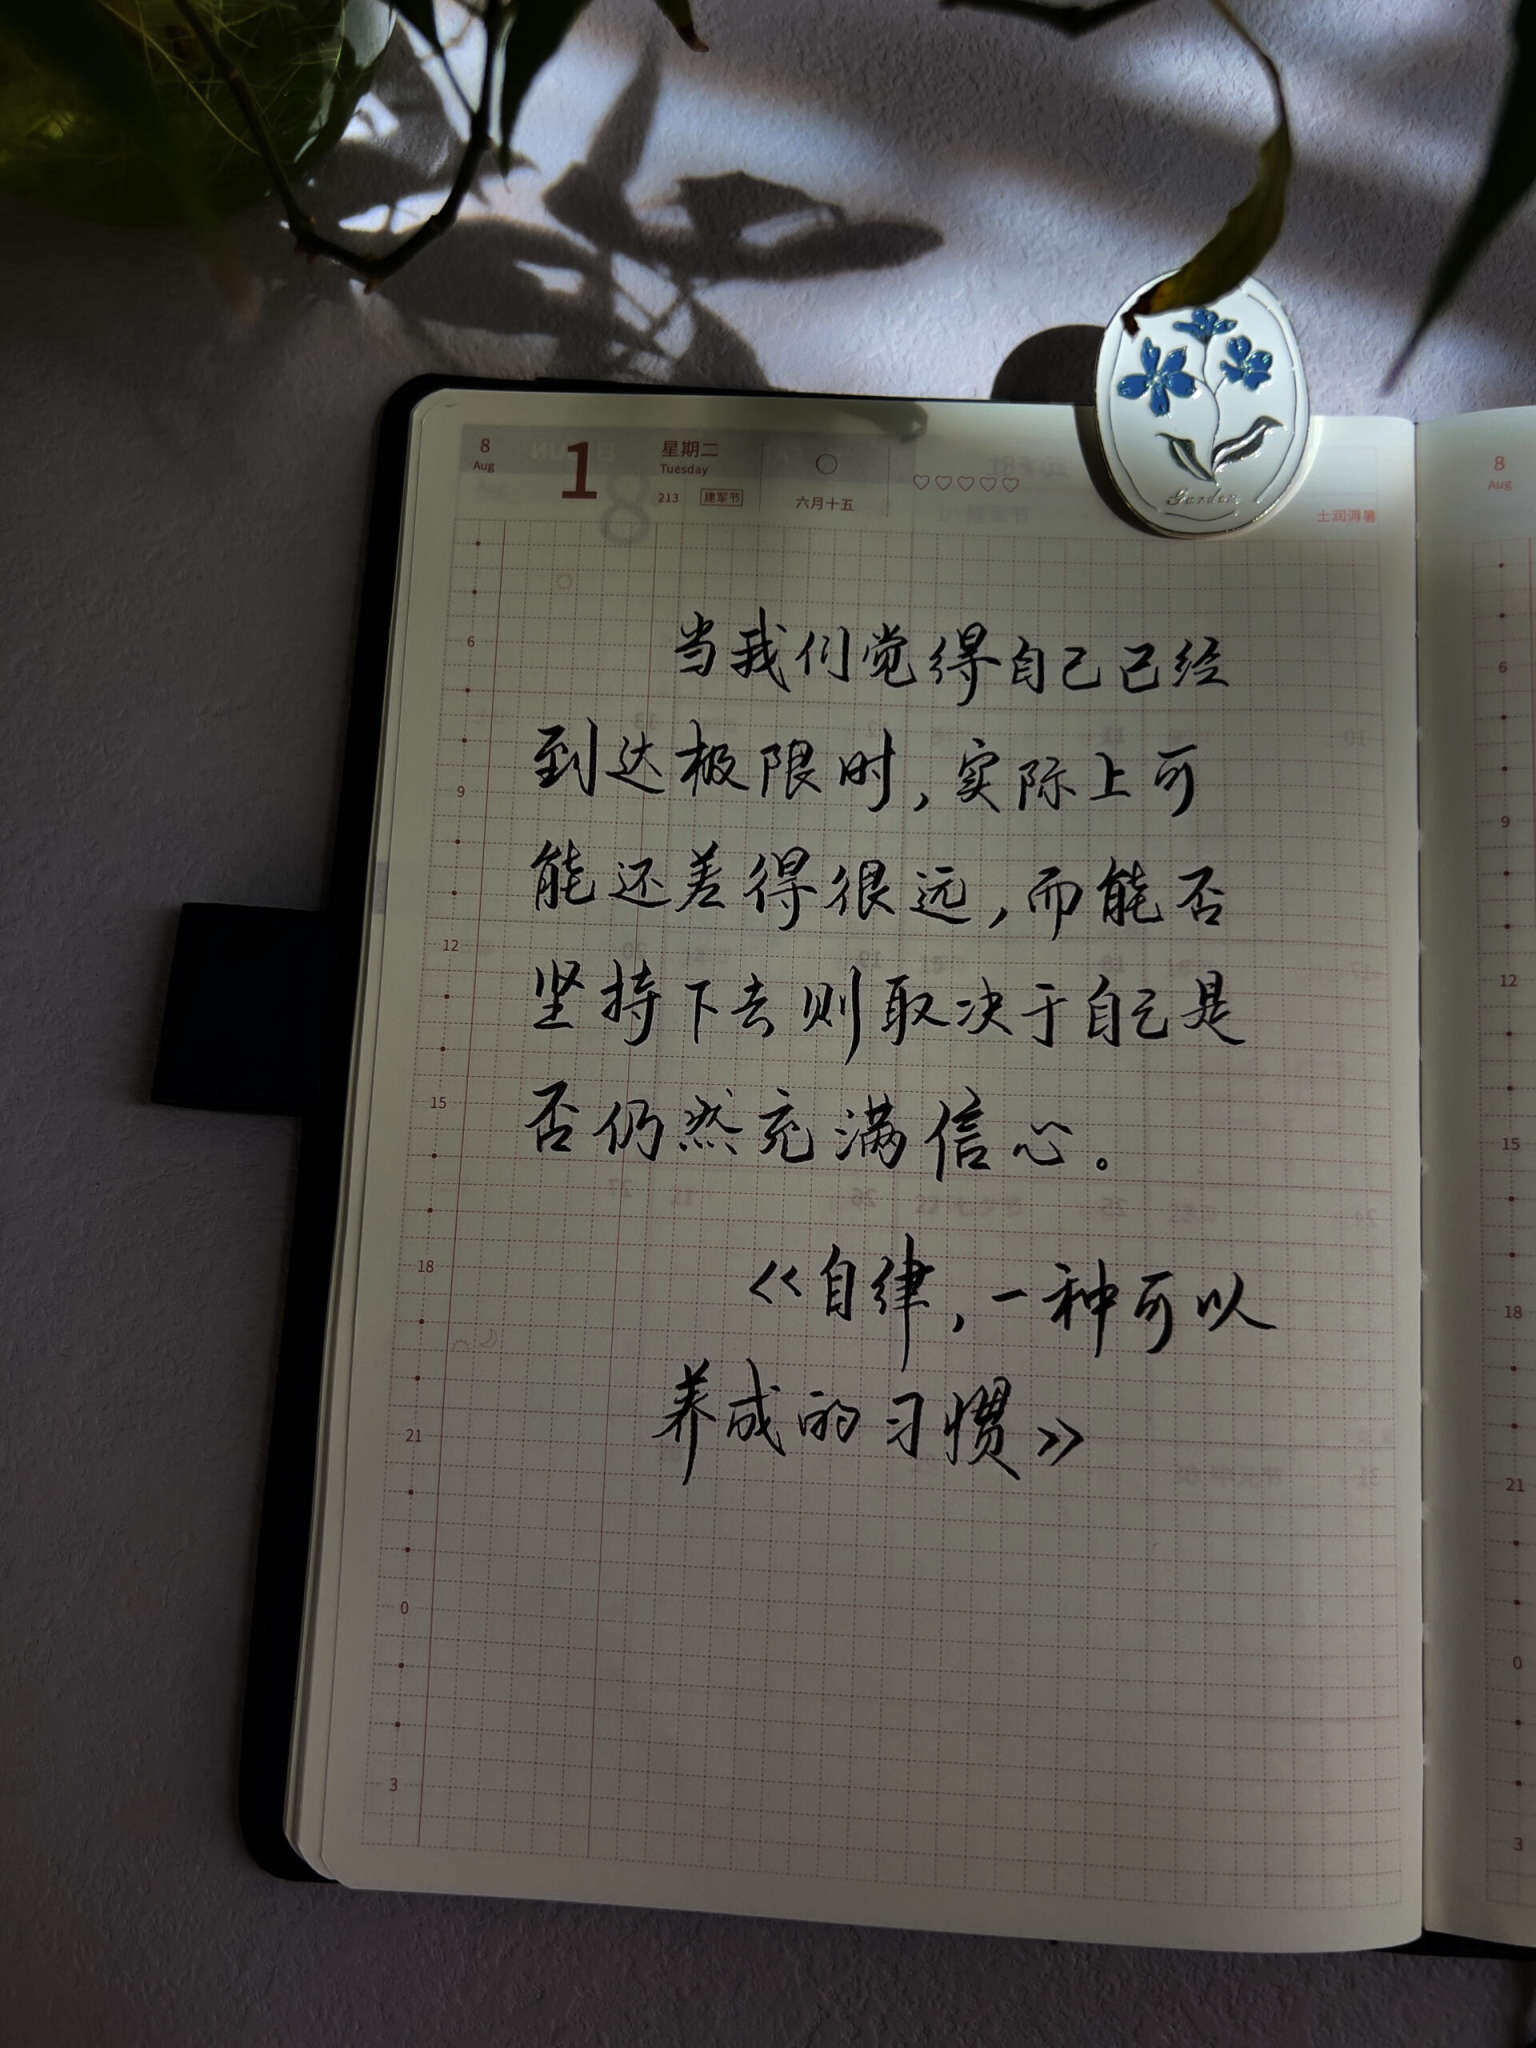 8
Aug
1
星期二
Tuesday
213 建军节
六月十五
Garden
土润溽暑
当我们觉得自己已经
到达极限时,实际上可
能还差得很远,而能否
坚持下去则取决于自己是
否仍然充满信心。
《自律,一种可以
养成的习惯》
6
9
12
15
18
21
0
3
8
Aug
6
9
12
15
18
21
0
3